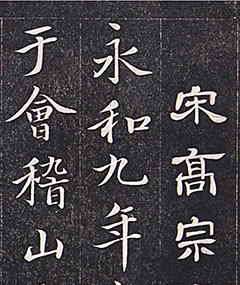 宋高宗
永和九年
于會稽山